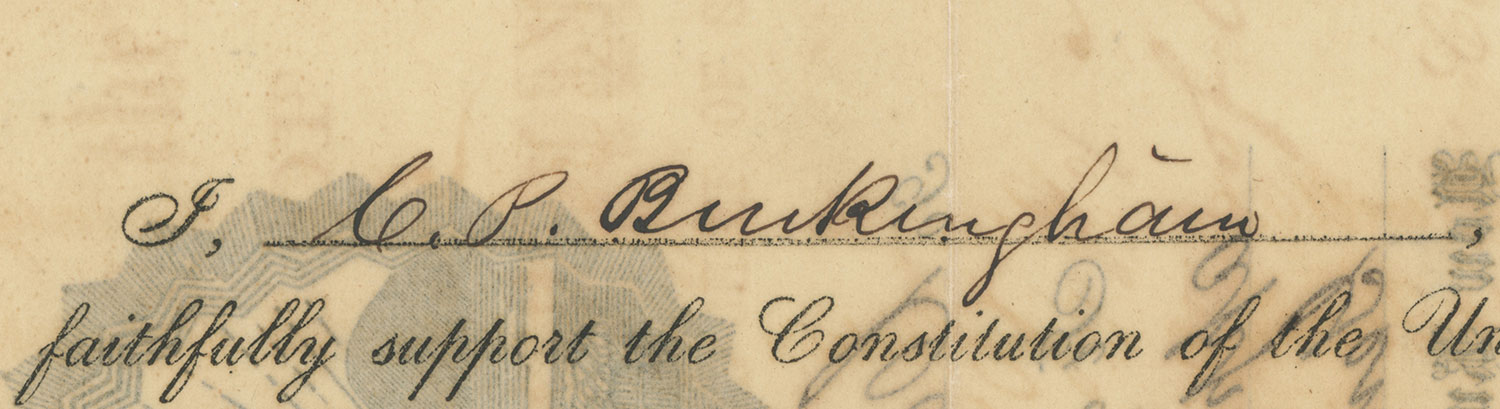 I, C. P. Buckingham,
faithfully support the Constitution of the Un